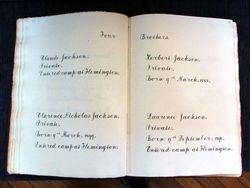 Four Brothers
Claude Jackson.
Private.
Entered camp at Flemington.
Clarence Nicholas Jackson.
Private.
Born 9th March,
Entered camp at Flemington.
Herbert Jackson.
Private.
Born 9th March,
Laurence Jackson.
Private.
Born 9th September,
Entered camp at Flemington.